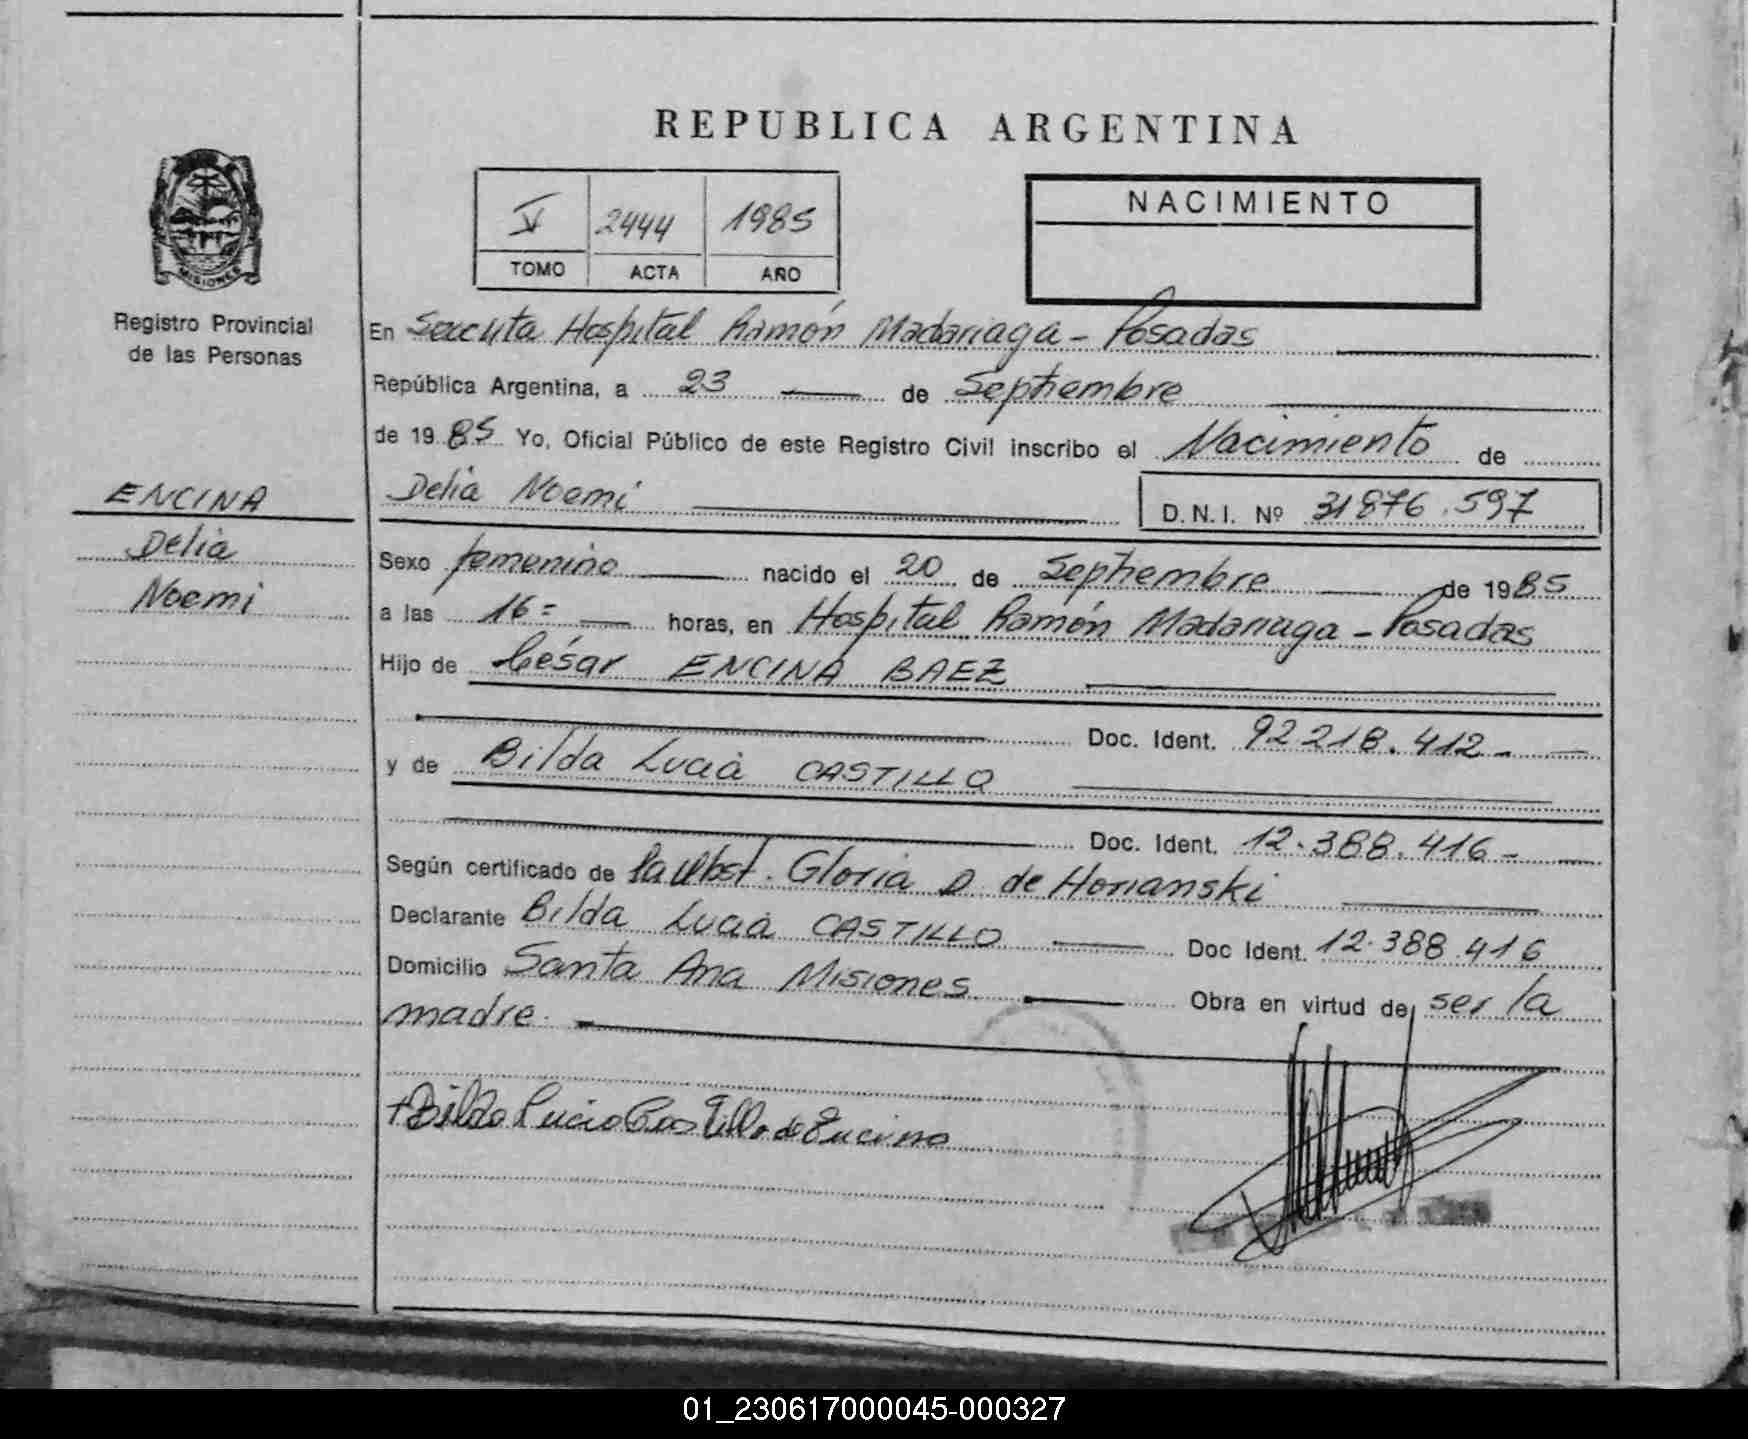 REPUBLICA ARGENTINA
MISIONES
Registro Provincial
de las Personas
V 2444 1985
TOMO ACTA AÑO
NACIMIENTO
En Hospital Ramón Madariaga - Posadas
República Argentina, a 23 de Septiembre
de 1985 Yo, Oficial Público de este Registro Civil inscribo el Nacimiento de
Delia Noemi D.N.I. Nº 31876.597
ENCINA
Delia
Noemi
Sexo femenino nacido el 20 de Septiembre de 1985
a las 16= horas, en Hospital Ramón Madariaga - Posadas
Hijo de César ENCINA BAEZ
Doc. Ident. 92218.412-
y de Bilda Lucia CASTILLO
Doc. Ident. 12.388.416-
Según certificado de la Obst. Gloria D. de Horianski
Declarante Bilda Lucia CASTILLO Doc Ident. 12.388.416
Domicilio Santa Ana Misiones Obra en virtud de ser la
madre.
+Bilda Lucia Castillo de Encina
01_230617000045-000327